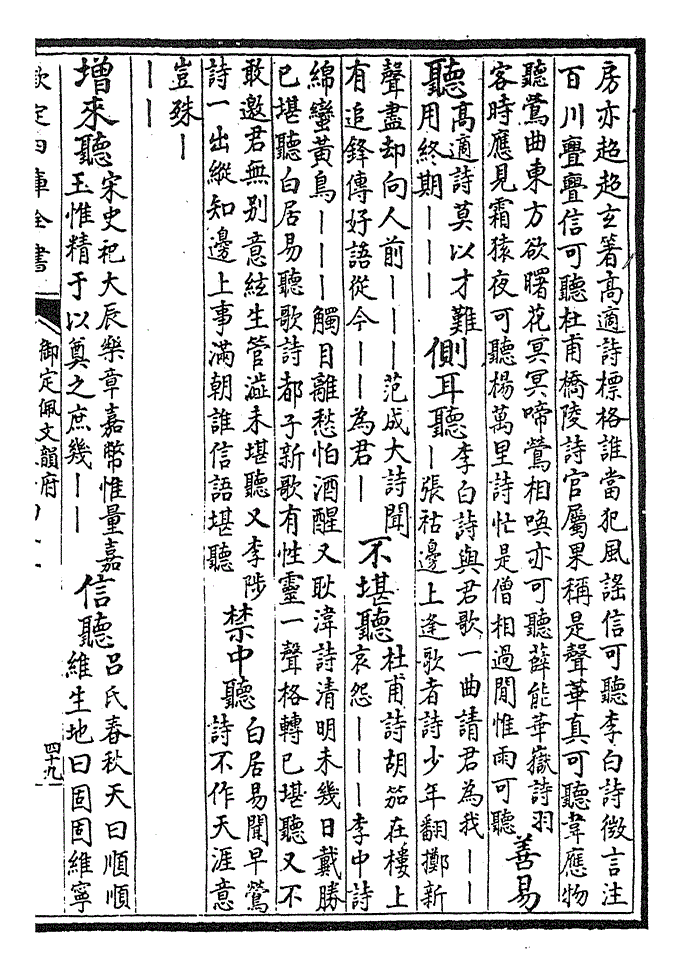 房亦超超玄箸高適詩標格誰當犯風謠信可聽李白詩微言注
百川亹亹信可聽杜甫橋陵詩官屬果稱是聲華真可聽韋應物
聽鶯曲東方欲曙花冥冥啼鶯相喚亦可聽薛能華嶽詩羽
客時應見霜猿夜可聽楊萬里詩忙是僧相過閒惟雨可聽
善易
聽
高適詩莫以才難
用終期｜｜｜
側耳聽
李白詩與君歌一曲請君為我｜｜
｜張祜邊上逢歌者詩少年翻擲新
聲盡却向人前｜｜｜范成大詩聞
有追鋒傳好語從今｜｜為君｜
不堪聽
杜甫詩胡笳在樓上
哀怨｜｜｜李中詩
綿蠻黃鳥｜｜｜觸目離愁怕酒醒又耿湋詩清明未幾日戴勝
已堪聽白居易聽歌詩都子新歌有性靈一聲格轉已堪聽又不
敢邀君無别意絃生管澁未堪聽又李陟
詩一出縱知邊上事滿朝誰信語堪聽
禁中聽
白居易聞早鶯
詩不作天涯意
豈殊｜
｜｜
增來聽
宋史祀大辰樂章嘉幣惟量嘉
玉惟精于以奠之庶幾｜｜
信聽
呂氏春秋天曰順順
維生地曰固固維寧
欽定四庫全書
御定佩文韻府
四十九